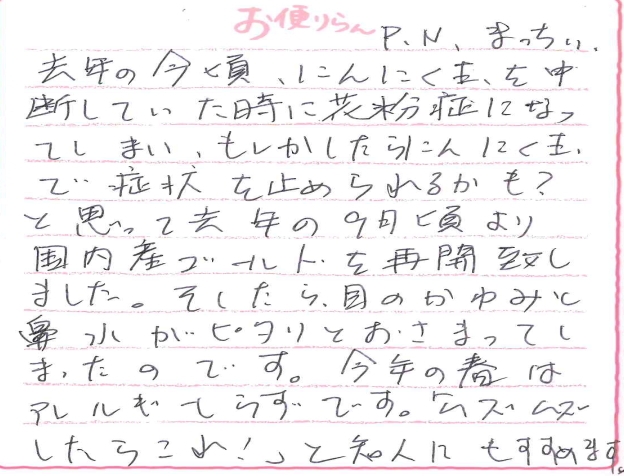 お便りらん
P.N. まっちぃ.
去年の今頃、にんにく玉を中
断していた時に花粉症になっ
てしまい、もしかしたらにんにく玉
で症状を止められるかも?
と思って去年の9月頃より
国内産ゴールドを再開致し
ました。そしたら、目のかゆみと
鼻水がピタリとおさまってし
まったのです。今年の春は
アレルギーしらずです。「ムズムズ
したらこれ!」と知人にもすすめます。